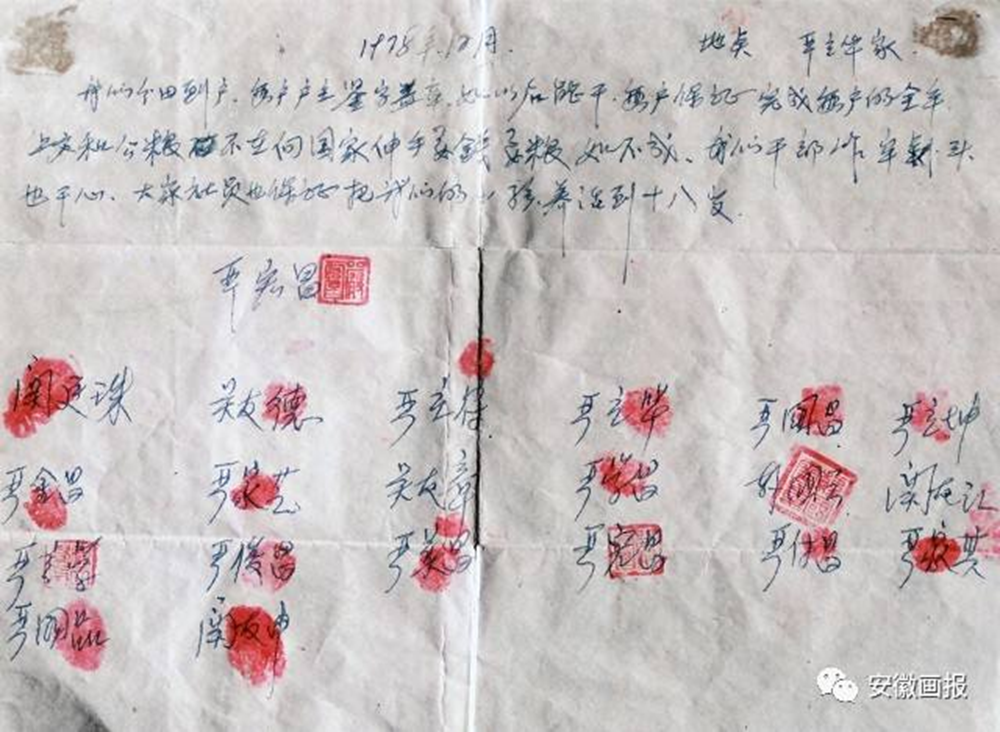 1978年12月. 地点 严立华家.
我们分田到户,每户户主签字盖章,如以后能干,每户保证完成每户的全年
上交和公粮不在向国家伸手要钱要粮,如不成,我们干部作牢杀头
也干心、大家社员也保证把我们的小孩养活到十八岁.
严宏昌
关廷珠 关友德 严立符 严立华 严国昌 严立坤
严金昌 严家芝 关友章 严学昌 韩国云 关友江
严立学 严俊昌 严美昌 严宏昌 严付昌 严家其
严国品 关友申
安徽画报